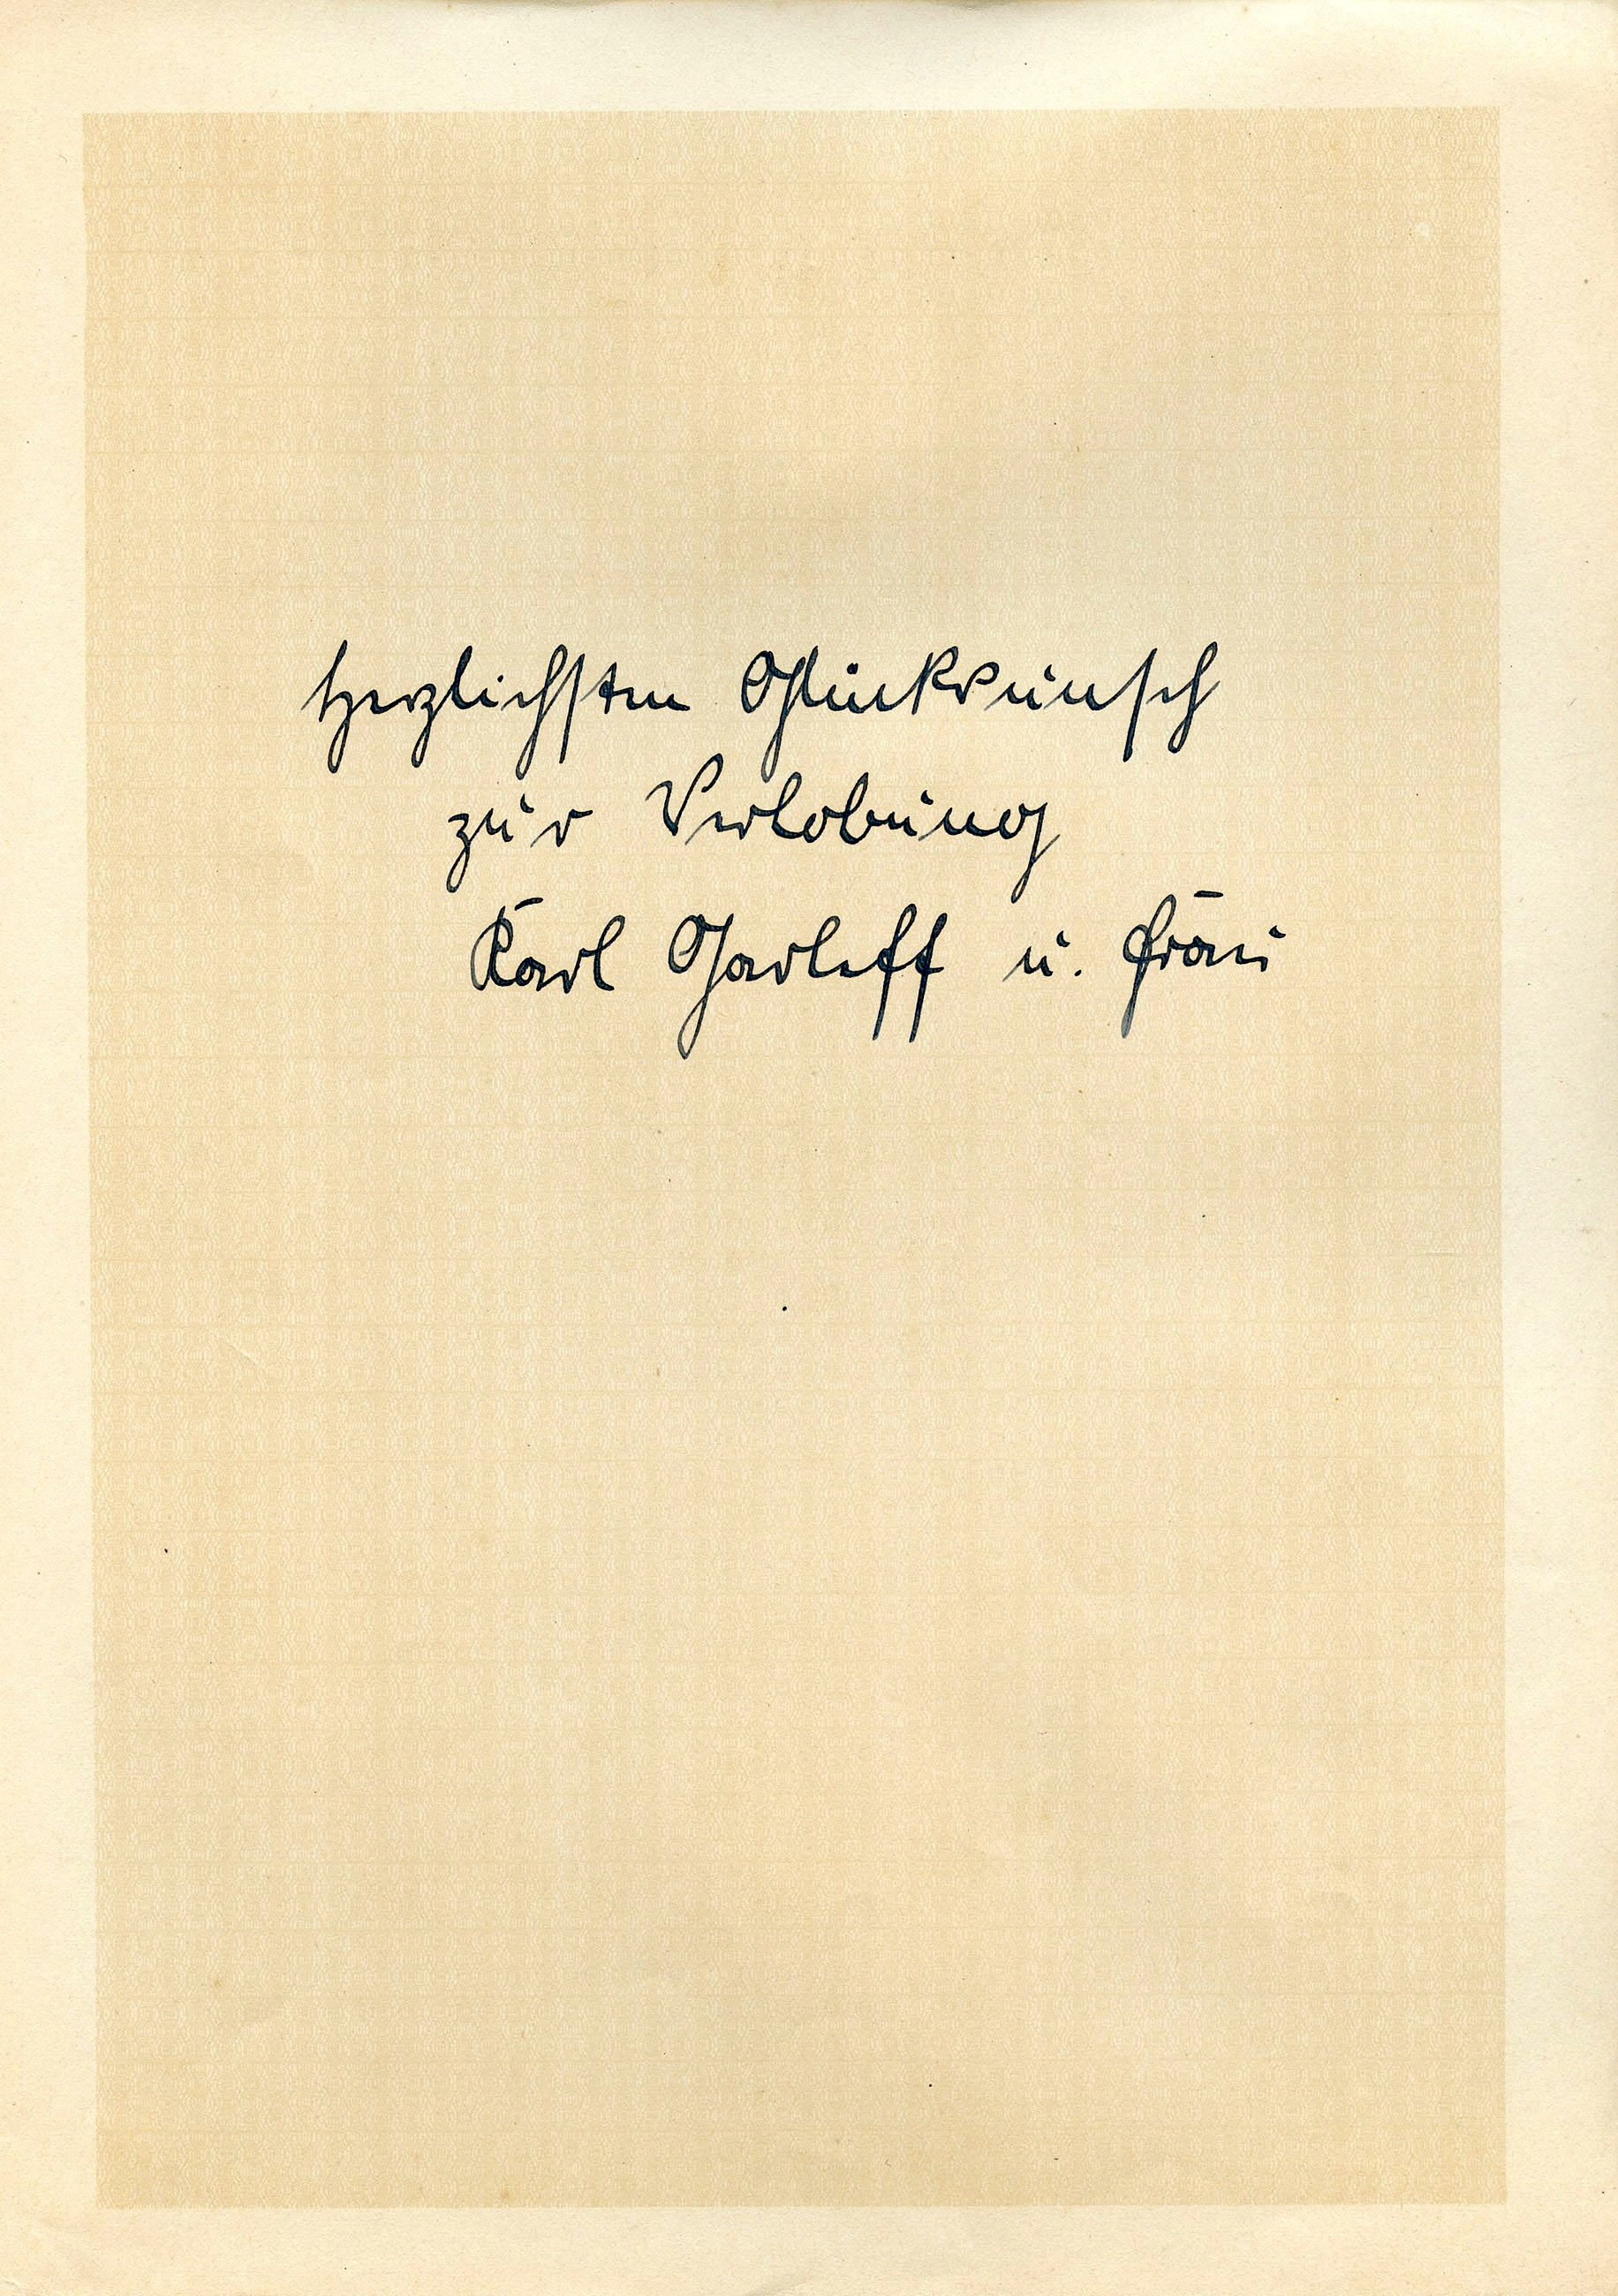 herzlichsten Glückwunsch
zur Verlobung
Karl Garleff u. Frau